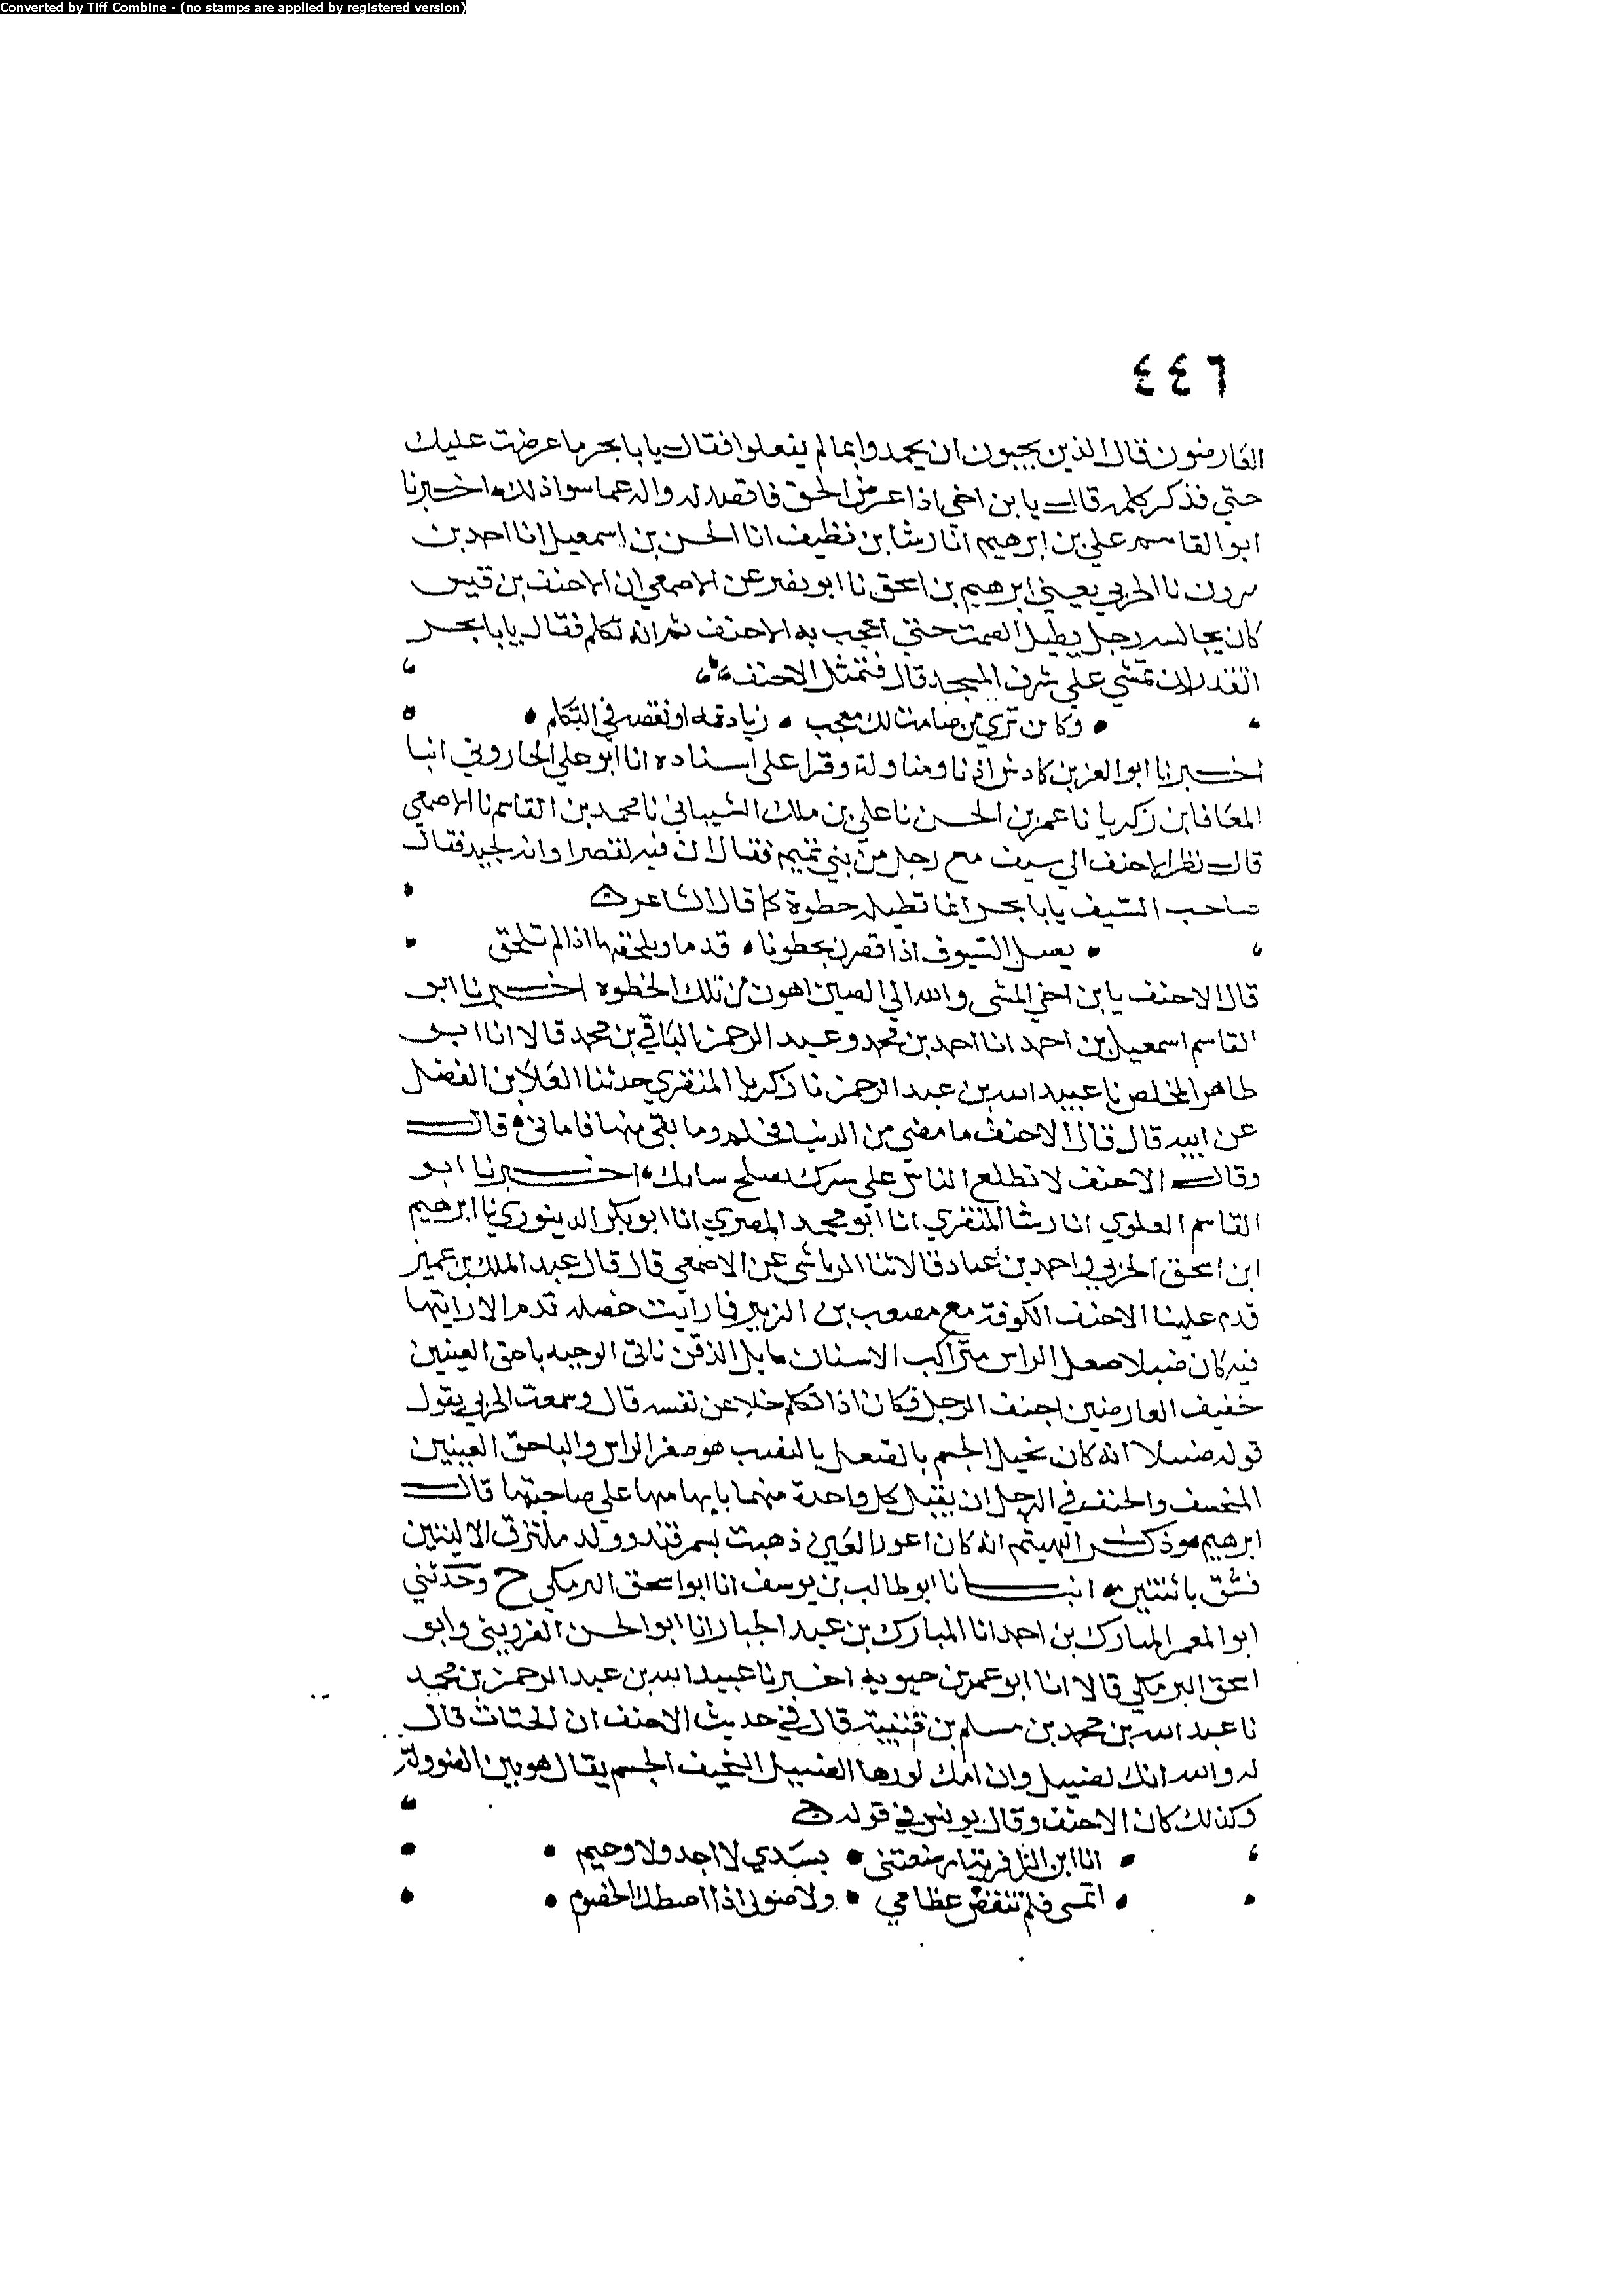 Converted by Tiff Combine - (no stamps are applied by registered version)
٤٤٦
العارضون قال الذين يحبون ان يحمدوا بما لم يفعلوا فقال يابا بحر ما عرضت عليك
حتى فذكر كلمه قال يا بن اخي اذا عرض الحق فاقصد له واله عما سوا ذلك اخبرنا
ابو القاسم علي بن ابرهيم انا رشا بن نظيف انا الحسن بن اسمعيل انا احمد بن
مرون نا الحربي يعني ابرهيم بن اسحق نا ابو نصر عن الاصمعي ان الاحنف بن قيس
كان يجالسه رجل يطيل الصمت حتى اعجب به الاحنف ثم انه تكلم فقال يابا بحر
اتقدر ان تمشي علي شرف المسجد قال فتمثل الاحنف
وكاين تري من صامت لك معجب زيادته او نقصه في التكلم
اخبرنا ابو العز بن كادش اذنا ومناولة وقرا على اسناده انا ابو علي الجازري انبا
المعافا بن زكريا نا عمر بن الحسن نا علي بن ملك الشيباني نا محمد بن القاسم نا الاصمعي
قال نظر الاحنف الي سيف مع رجل من بني تميم فقال ان فيه لقصرا وانه لجيد فقال
صاحب السيف يابا بحر انما تطيله خطوة كما قال الشاعر
يصل السيوف اذا قصرن بخطونا قدما ويلحقها اذا لم تلحق
قال الاحنف يا بن اخي المشى والله الي الصين اهون من تلك الخطوه اخبرنا ابو
القاسم اسمعيل بن احمد انا احمد بن محمد وعبد الرحمن الباقي بن محمد قالا انا ابو
طاهر المخلص نا عبيد الله بن عبد الرحمن نا زكريا المنقري حدثنا العلا بن الفضل
عن ابيه قال قال الاحنف ما مضي من الدنيا فحلم وما بقى منها فاماني قال
وقال الاحنف لا تطلع الناس علي سرك يصلح سانك اخبرنا ابو
القاسم العلوي انا رشا المنقري انا ابو محمد المصري انا ابو بكر الدينوري نا ابرهيم
ابن اسحق الحربي واحمد بن عباد قالا ثنا الرياشى عن الاصمعي قال قال عبد الملك بن عمير
قدم علينا الاحنف الكوفة مع مصعب بن الزبير فما رايت خصله تذم الا رايتها
فيه كان ضيلا صعل الراس متراكب الاسنان مايل الذقن ناتى الوجه باحق العينين
خفيف العارضين احنف الرجل فكان اذا تكلم خلا عن نفسه قال وسمعت الحربي يقول
قوله ضيلا انه كان نحيل الجسم بالصعل بالنصب هو صغر الراس والباحق العينين
المنخسف والحنف في الرجل ان يقبل كل واحدة منهما بابهامها علي صاحبتها قال
ابرهيم وذكر الهيثم انه كان اعور العين ذهبت بسمرقند وولد ملتزق الاليتين
فشق باثنتين انبانا ابو طالب بن يوسف انا ابو اسحق البرمكي ح وحدثني
ابو المعمر المبارك بن احمد انا المبارك بن عبد الجبار انا ابو الحسن القزويني وابو
اسحق البرمكي قالا انا ابو عمر بن حيويه اخبرنا عبيد الله بن عبد الرحمن بن محمد
نا عبد الله بن محمد بن مسلم بن قتيبة قال في حديث الاحنف ان الحتات قال
له والله انك لضييل وان امك لورها الضييل النحيف الجسم يقال هو بين الضوولة
وكذلك كان الاحنف وقال يونس في قوله
انا ابن منعتني بثدي لا اجد ولا وخيم
اتمتني فلم تنقص عظامي ولا صوتي اذا اصطك الخصوم